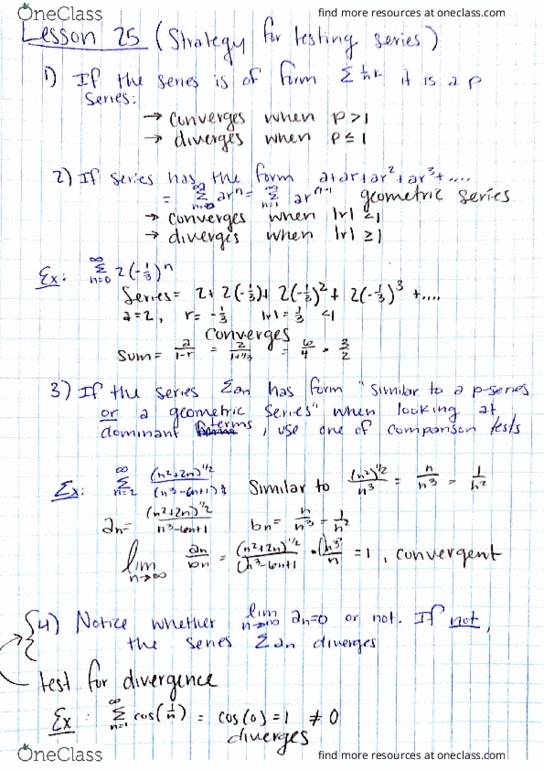 OneClass find more resources at oneclass.com
Lesson 25 (Strategy for testing series)
1) If the series is of form Σ 1/nᵖ it is a p
series:
→ converges when p>1
→ diverges when p≤1
2) If series has the form a+ar+ar²+ar³+....
= Σ_{n=0}^∞ arⁿ = Σ_{n=1}^∞ arⁿ⁻¹ geometric series
→ converges when |r|<1
→ diverges when |r|≥1
Ex: Σ_{n=0}^∞ 2(-1/3)ⁿ
Series = 2+2(-1/3)+2(-1/3)²+2(-1/3)³+....
a=2, r=-1/3 |r|=1/3 <1
converges
Sum = a/(1-r) = 2/(1+1/3) = 6/4 = 3/2
3) If the series Σan has form "similar to a p-series
or a geometric series" when looking at
dominant terms, use one of comparison tests
Ex: Σ_{n=2}^∞ (n²+2n)^1/2 / (n³-6n+1) Similar to (n²)^1/2 / n³ = n/n³ = 1/n²
an = (n²+2n)^1/2 / n³-6n+1 bn = n/n³ = 1/n²
lim_{n→∞} an/bn = (n²+2n)^1/2 / (n³-6n+1) · (n³/n) = 1, convergent
4) Notice whether lim_{n→∞} an=0 or not. If not,
the series Σan diverges
test for divergence
Ex: Σ_{n=1}^∞ cos(1/n) = cos(0) = 1 ≠ 0
diverges
OneClass find more resources at oneclass.com